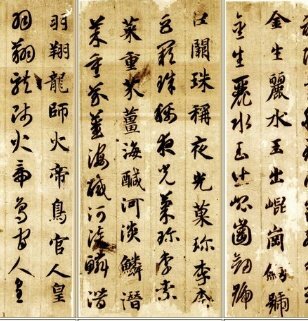 金生麗水玉出崐崗劍號
金生麗水玉出崐崗劍號
巨闕珠稱夜光菓珍李柰
巨闕珠稱夜光菓珍李柰
菜重芥薑海醎河淡鱗潛
菜重芥薑海醎河淡鱗潛
羽翔龍師火帝鳥官人皇
羽翔龍師火帝鳥官人皇